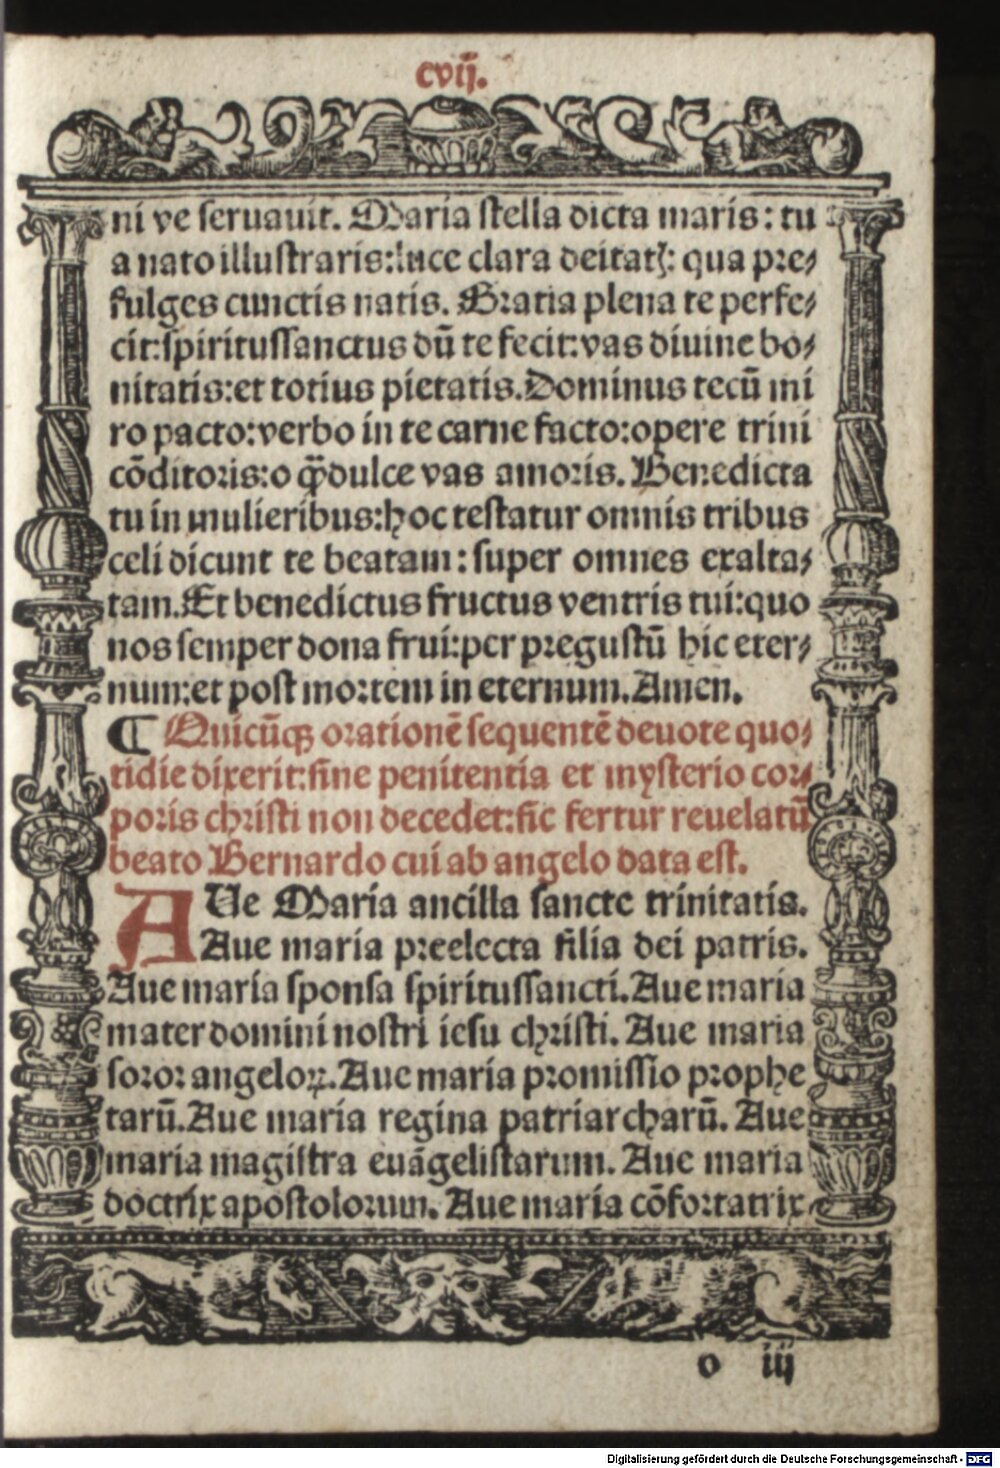 cvij.
ni ve seruauit. Maria stella dicta maris: tu
a nato illustraris: luce clara deitatꝭ: qua pre⸗
fulges cunctis natis. Gratia plena te perfe⸗
cit: spiritussanctus dū te fecit: vas diuine bo⸗
nitatis: et totius pietatis. Dominus tecū mi
ro pacto: verbo in te carne facto: opere trini
cōditoris: o ꝙ̄ dulce vas amoris. Benedicta
tu in mulieribus: hoc testatur omnis tribus
celi dicunt te beatam: super omnes exalta⸗
tam. Et benedictus fructus ventris tui: quo
nos semper dona frui: per pregustū hic eter⸗
num: et post mortem in eternum. Amen.
¶ Quicūqꝫ orationē sequentē deuote quo⸗
tidie dixerit: sine penitentia et mysterio cor⸗
poris christi non decedet: sic fertur reuelatū
beato Bernardo cui ab angelo data est.
AUe Maria ancilla sancte trinitatis.
Aue maria preelecta filia dei patris.
Aue maria sponsa spiritussancti. Aue maria
mater domini nostri iesu christi. Aue maria
soror angeloꝝ. Aue maria promissio prophe
tarū. Aue maria regina patriarcharū. Aue
maria magistra euāgelistarum. Aue maria
doctrix apostolorum. Aue maria cōfortatrix
o iij
Digitalisierung gefördert durch die Deutsche Forschungsgemeinschaft - DFG